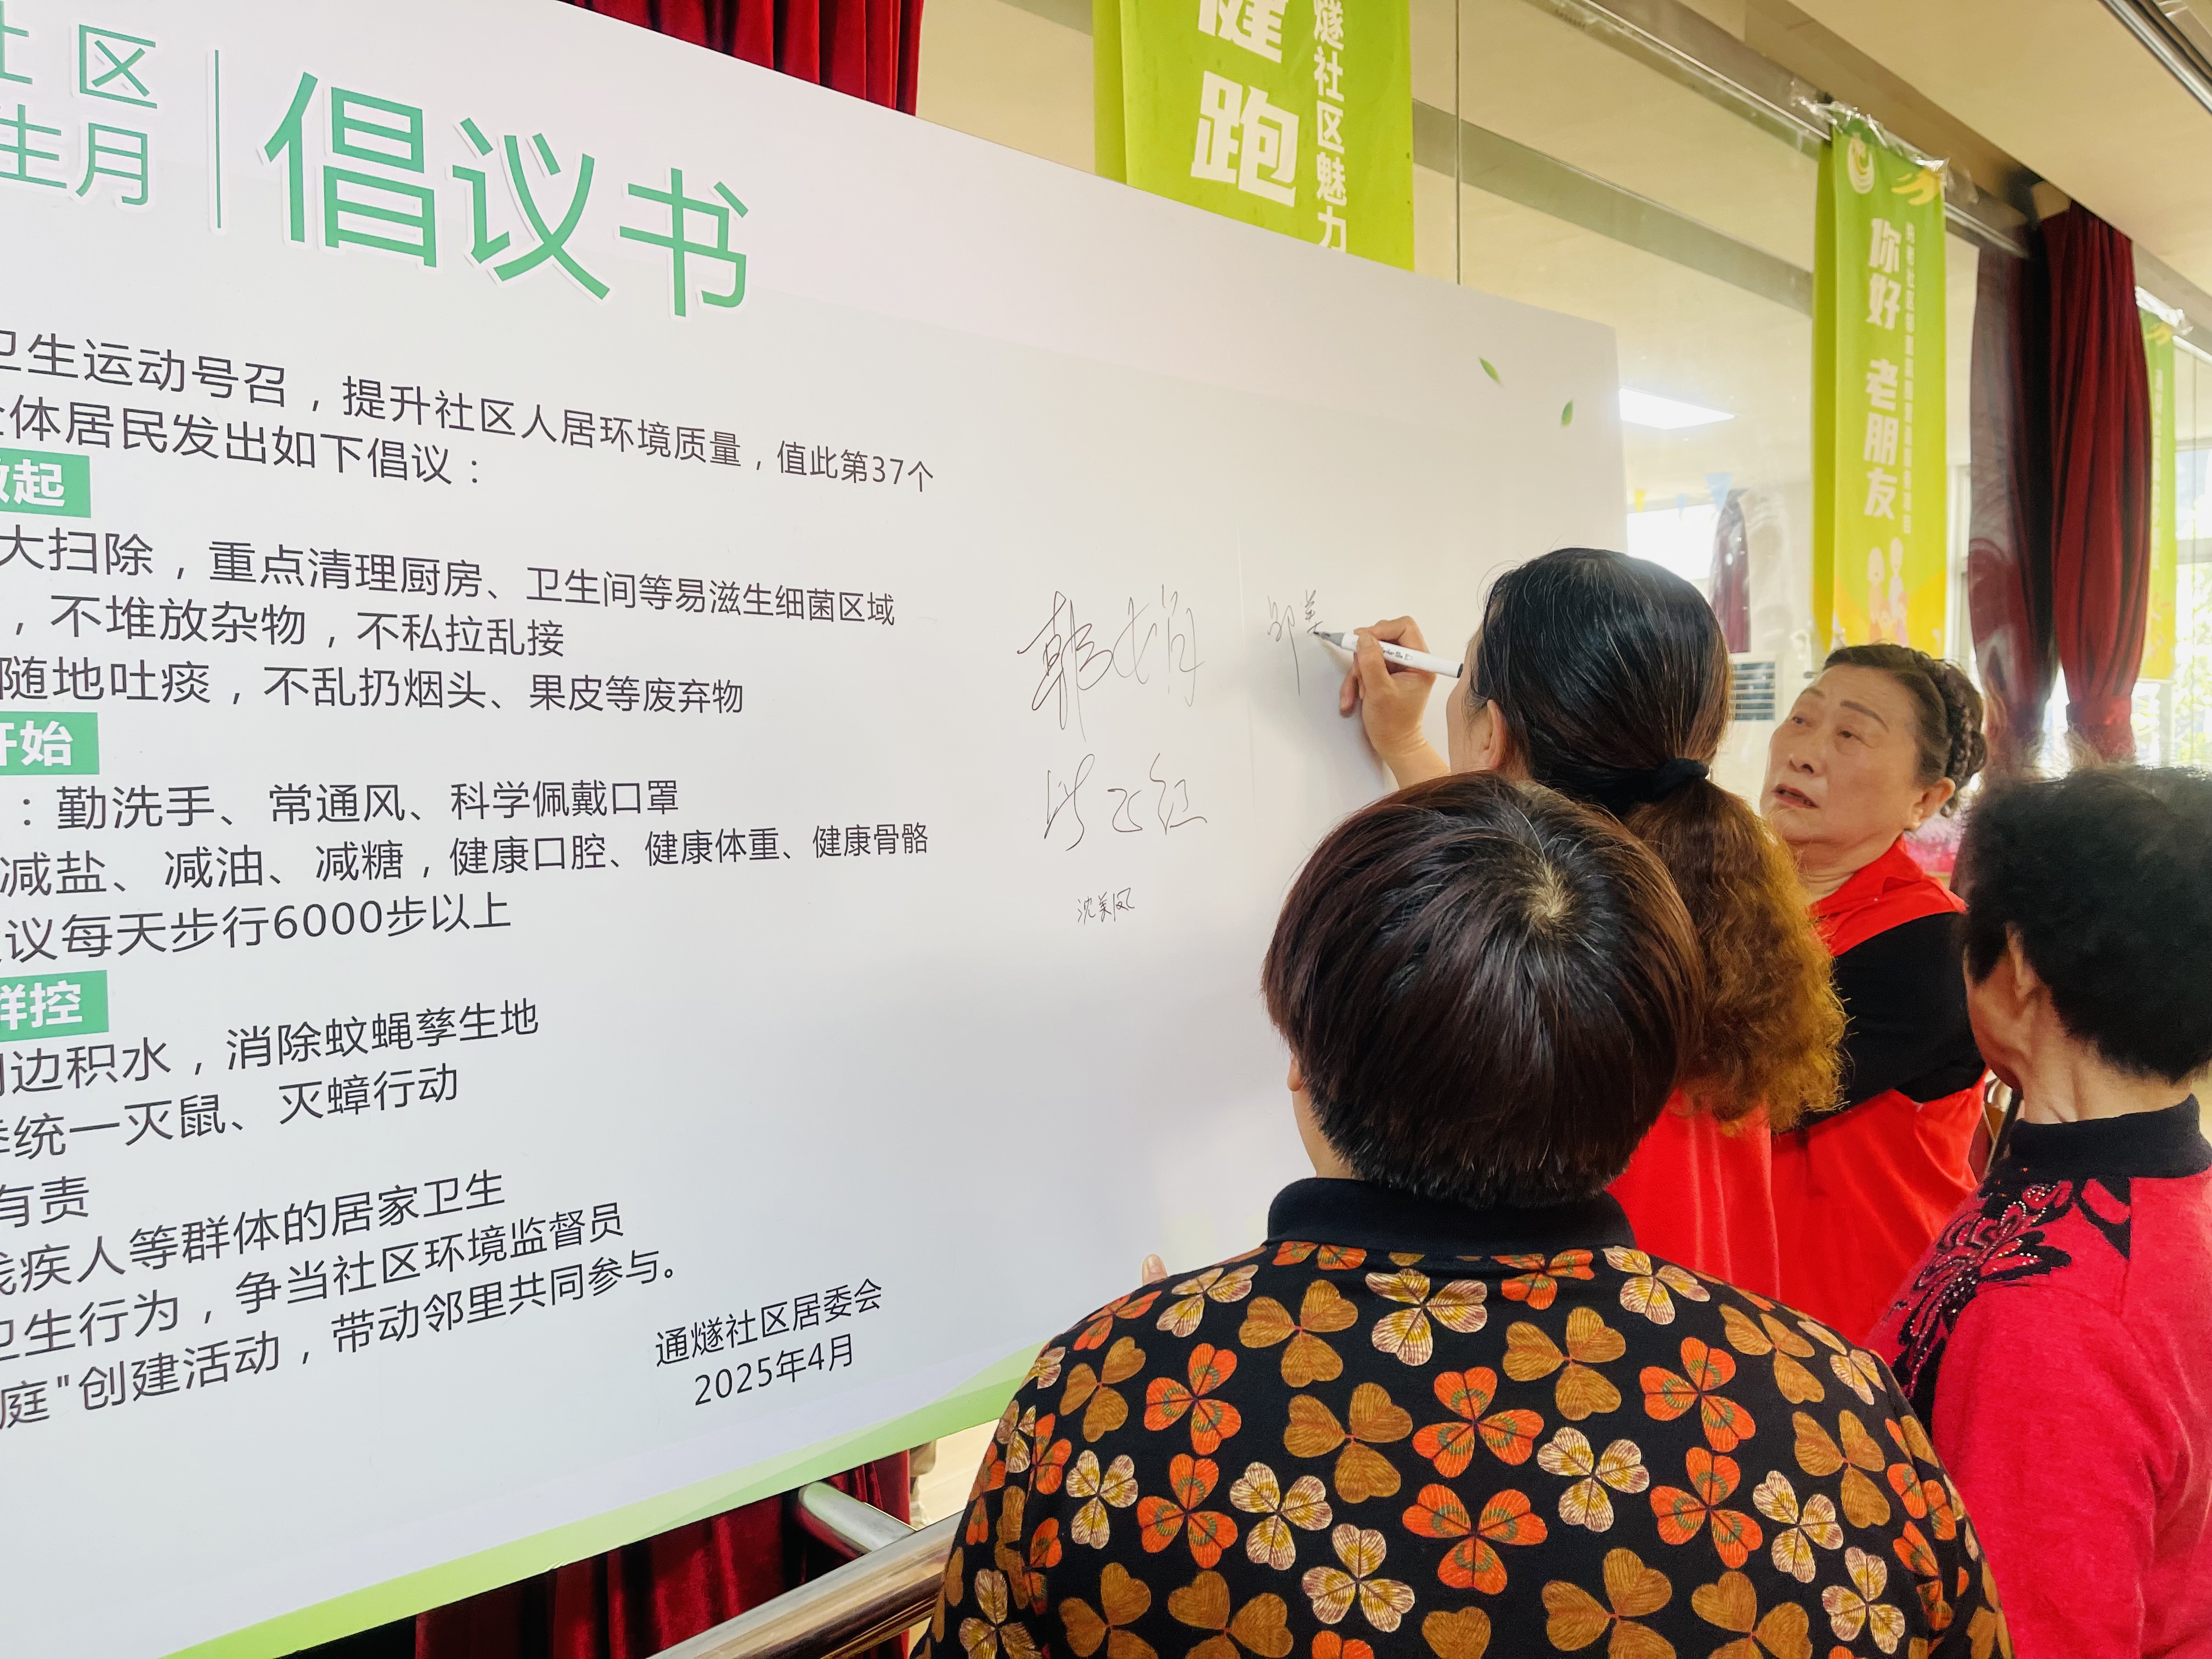 社区
生月
倡议书
卫生运动号召，提升社区人居环境质量，值此第37个
全体居民发出如下倡议：
做起
大扫除，重点清理厨房、卫生间等易滋生细菌区域
，不堆放杂物，不私拉乱接
随地吐痰，不乱扔烟头、果皮等废弃物
开始
：勤洗手、常通风、科学佩戴口罩
减盐、减油、减糖，健康口腔、健康体重、健康骨骼
议每天步行6000步以上
群控
边积水，消除蚊蝇孳生地
季统一灭鼠、灭蟑行动
有责
残疾人等群体的居家卫生
卫生行为，争当社区环境监督员
庭"创建活动，带动邻里共同参与。
通燧社区居委会
2025年4月
沈美凤
邹美
健跑
燧社区魅力
你好 老朋友